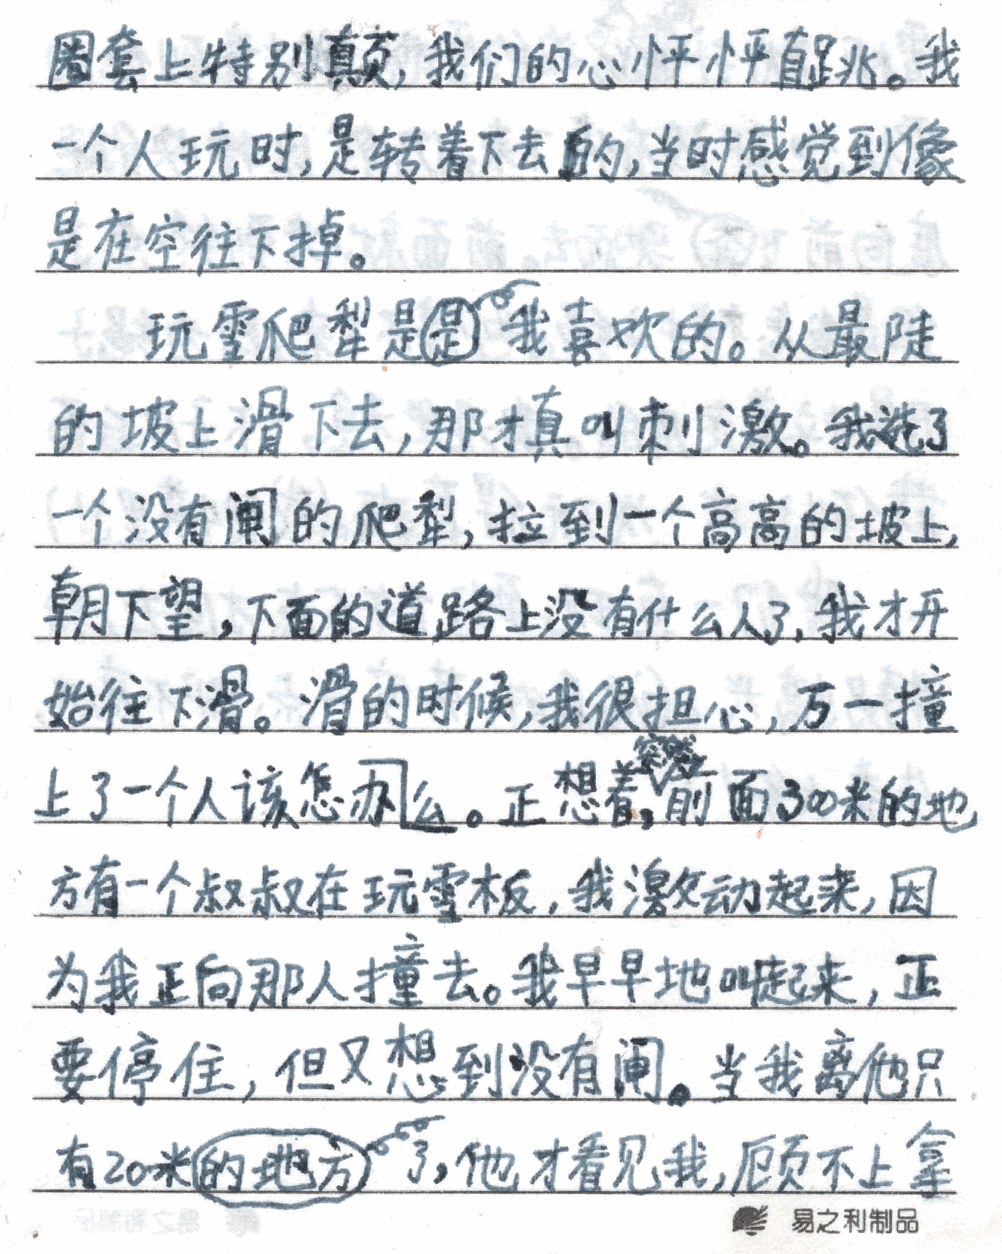 圈套上特别颠,我们的心怦怦直跳。我
一个人玩时,是转着下去的,当时感觉到像
是在空往下掉。
玩雪爬犁是是我喜欢的。从最陡
的坡上滑下去,那才真叫刺激。我选了
一个没有闸的爬犁,拉到一个高高的坡上,
朝下望,下面的道路上没有什么人了,我才开
始往下滑。滑的时候,我很担心,万一撞
突然
上了一个人该怎办么。正想着,前面300米的地
方有一个叔叔在玩雪板,我激动起来,因
为我正向那人撞去。我早早地叫起来,正
要停住,但又想到没有闸。当我离他只
有20米的地方了,他才看见我,顾不上拿
易之利制品